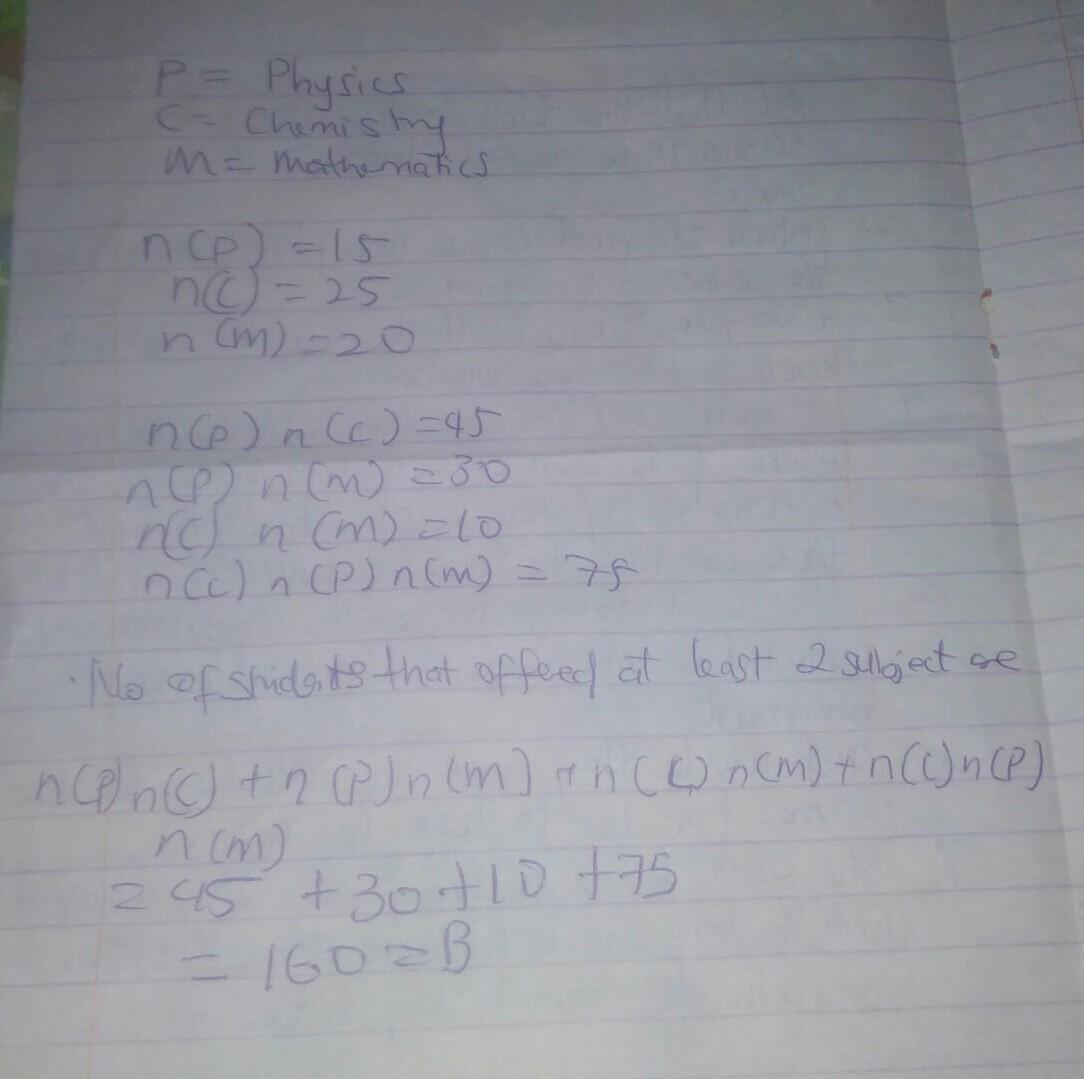 P = Physics
C = Chemistry
M = Mathematics
n(P) = 15
n(C) = 25
n(m) = 20
n(P) n(C) = 45
n(P) n(m) = 30
n(C) n(m) = 10
n(C) n(P) n(m) = 75
No of students that offeed at least 2 subject are
n(P) n(C) + n(P) n(m) + n(C) n(m) + n(C) n(P)
n(m)
= 45 + 30 + 10 + 75
= 160 = B